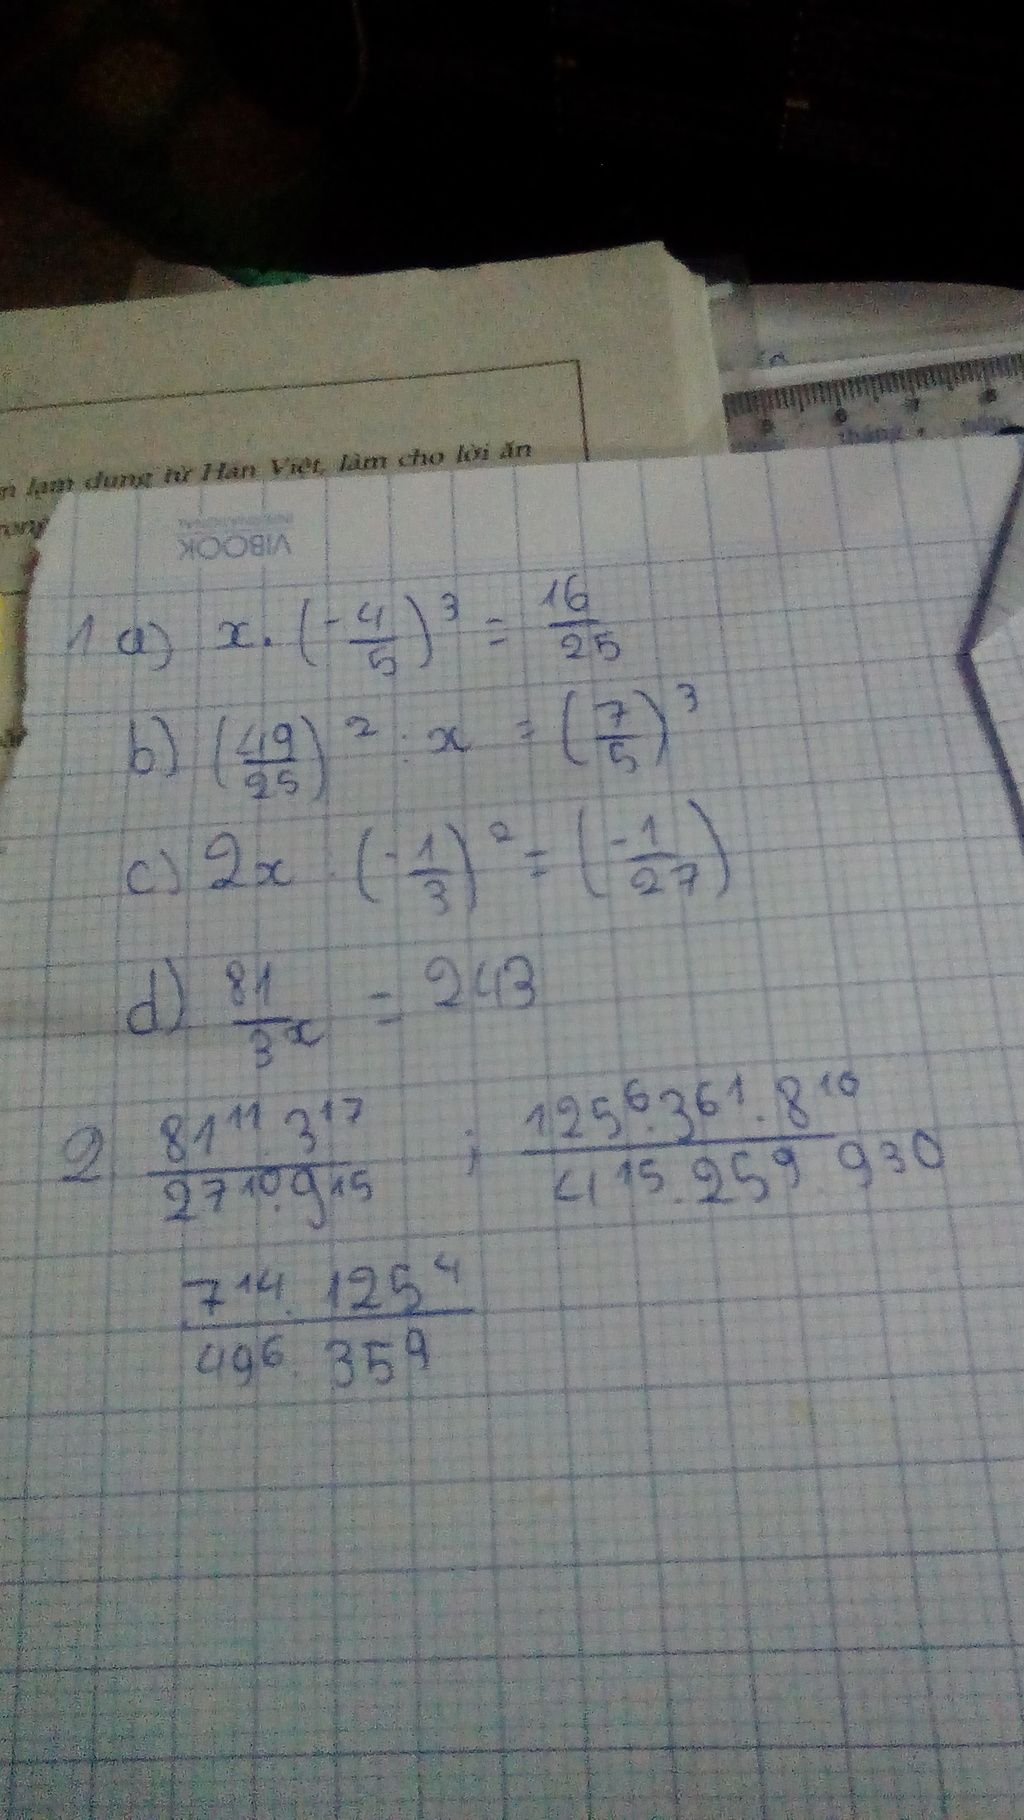 n lạm dụng từ Hán Việt, làm cho lời ăn
VIBOOK
INTERNATIONAL
1 a) x . (-4/5)^3 = 16/25
b) (49/25)^2 : x = (7/5)^3
c) 2x . (-1/3)^2 = (-1/27)
d) 81/3^x = 243
2 81^11 . 3^17 / 27^10 . 9^15 ; 125^6 . 3^61 . 8^10 / 4^15 . 25^9 . 9^30
7^14 . 125^4 / 49^6 . 35^9